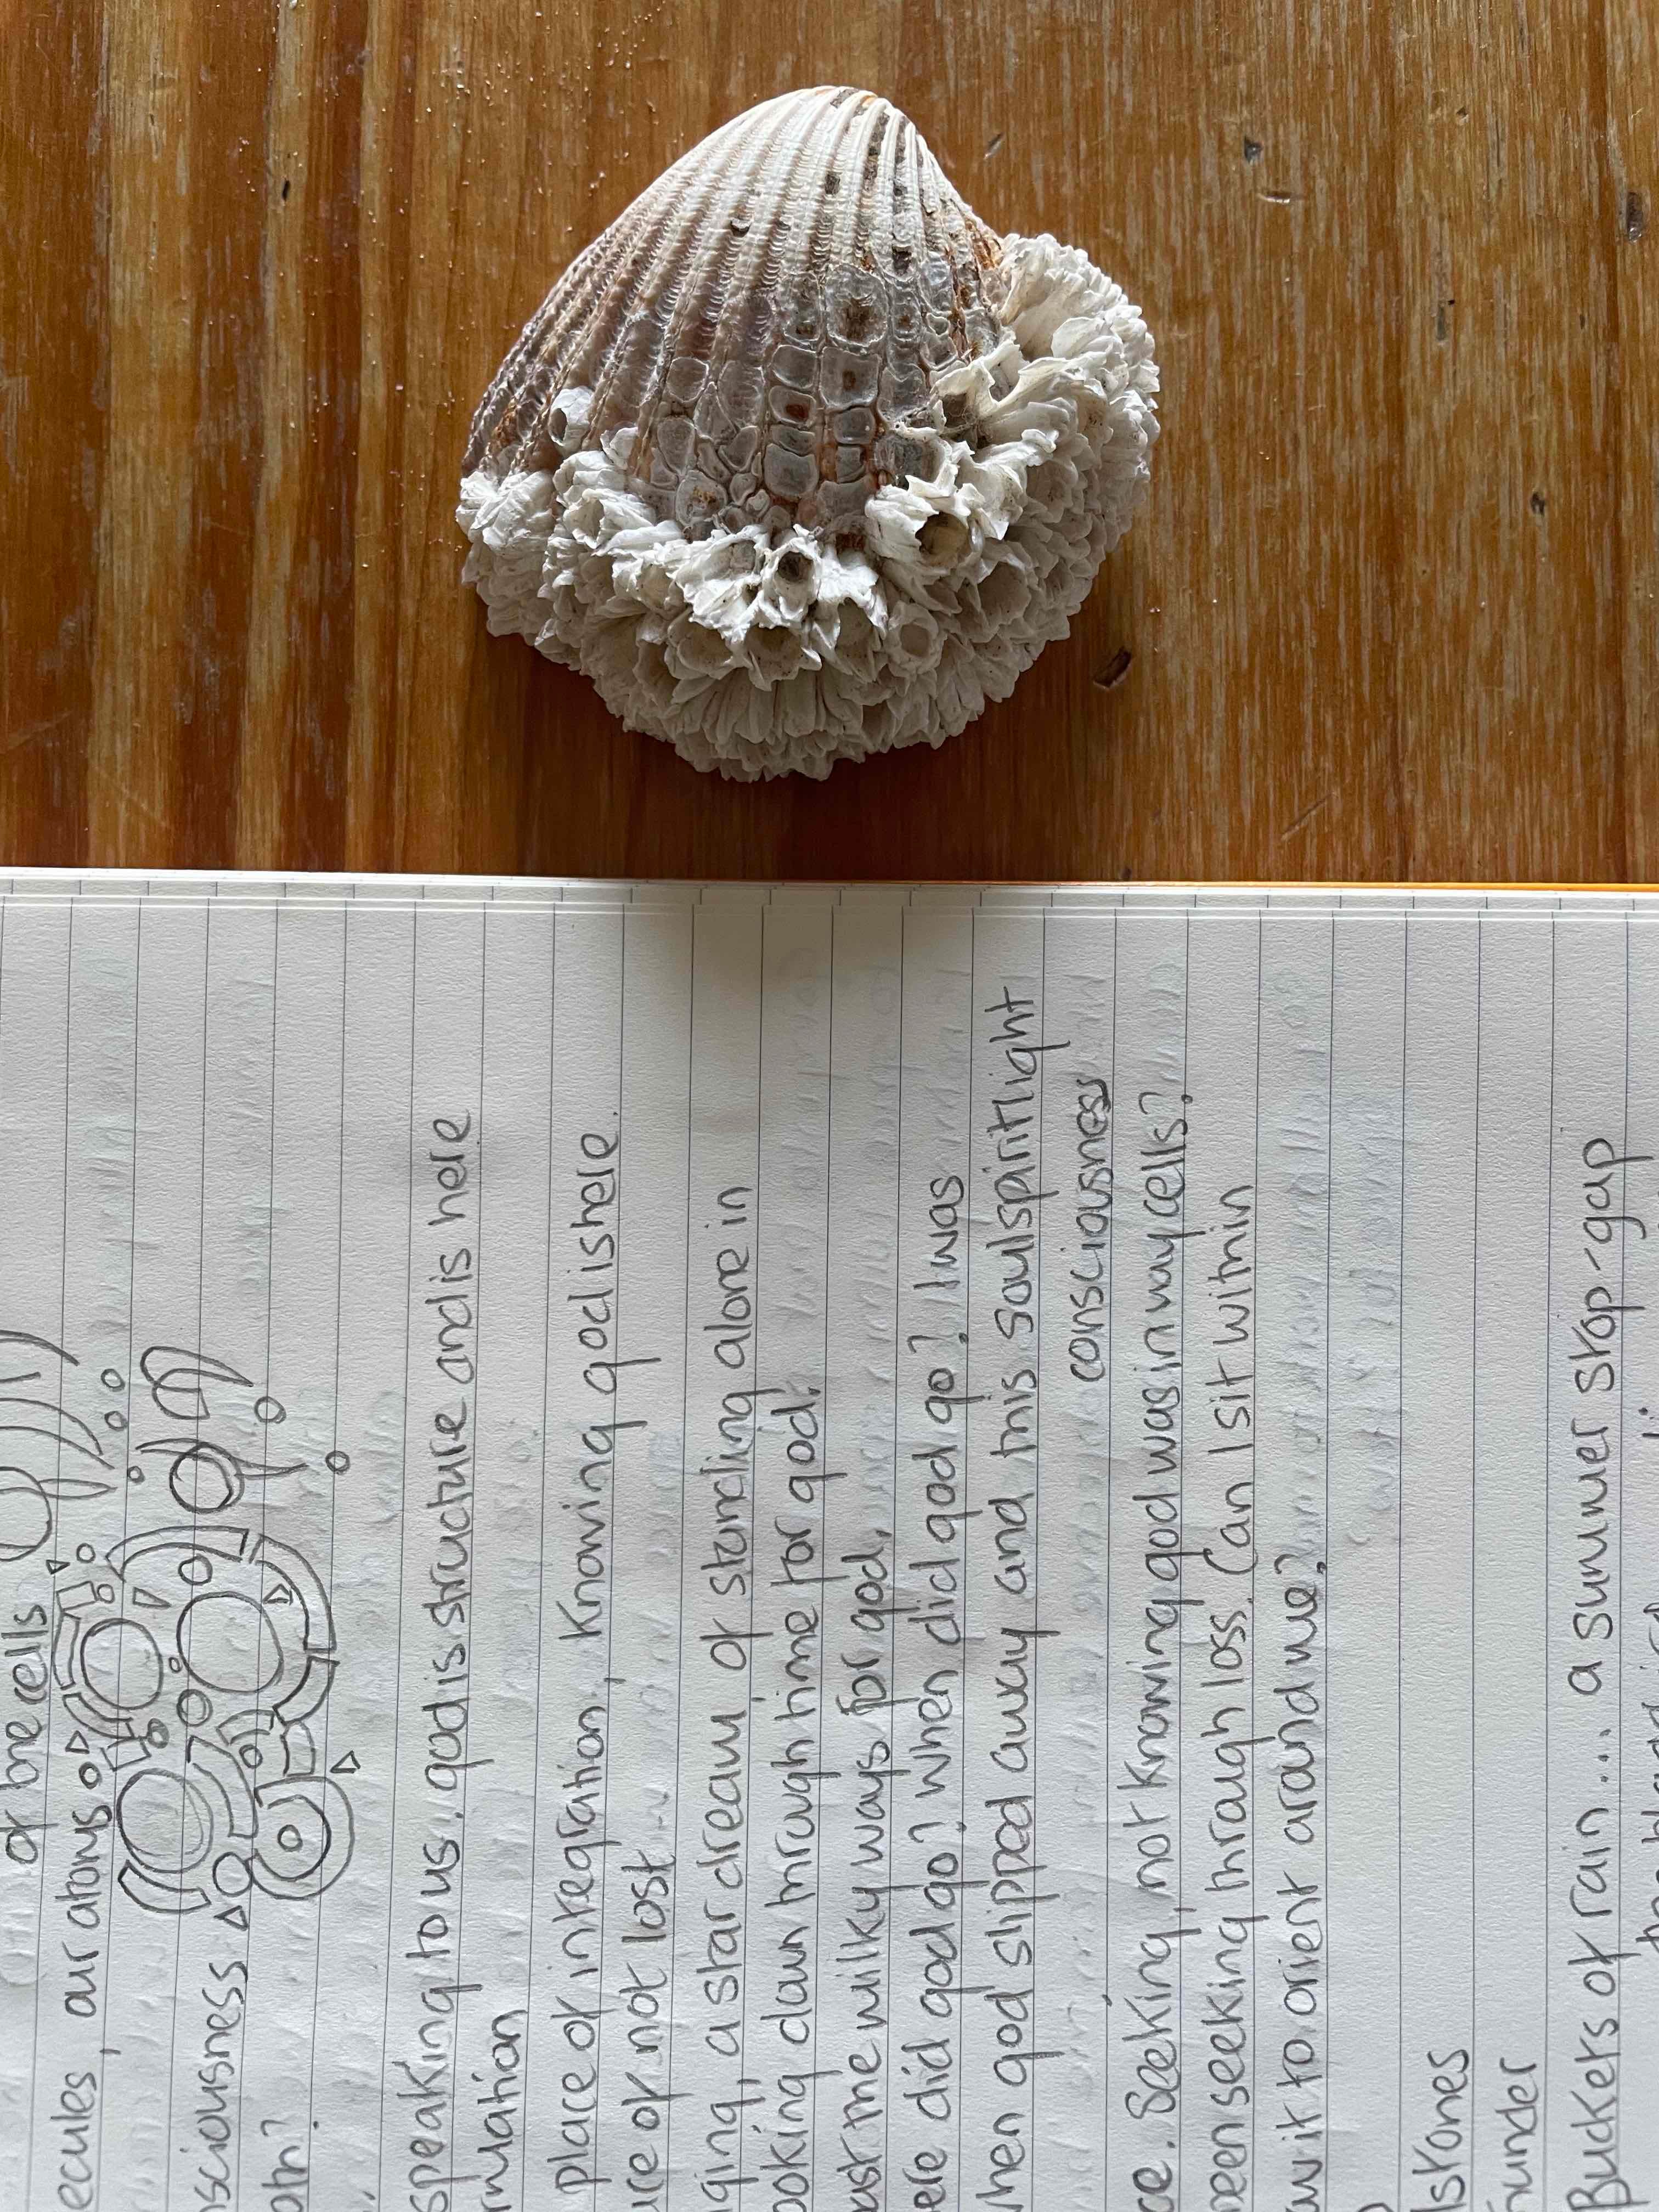 of one cells
ecules, our atoms
nsciousness
oth?
speaking to us. god is structure and is here
rmation
place of integration, knowing god is here.
ce of not lost
ging, a star dream, of standing alone in
ooking down through time for god.
ast the milky ways for god.
ere did god go? when did god go? I was
when god slipped away and this soulspiritlight
consciousness
ce. Seeking, not knowing god was in my cells?
been seeking through loss. Can I sit within
w it to orient around me?
lstones
hunder
Buckets of rain... a summer stop-gap